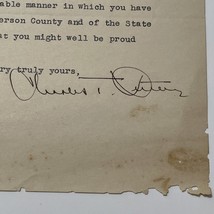 able manner in which you have
erson County and of the State
t you might well be proud
ry truly yours,